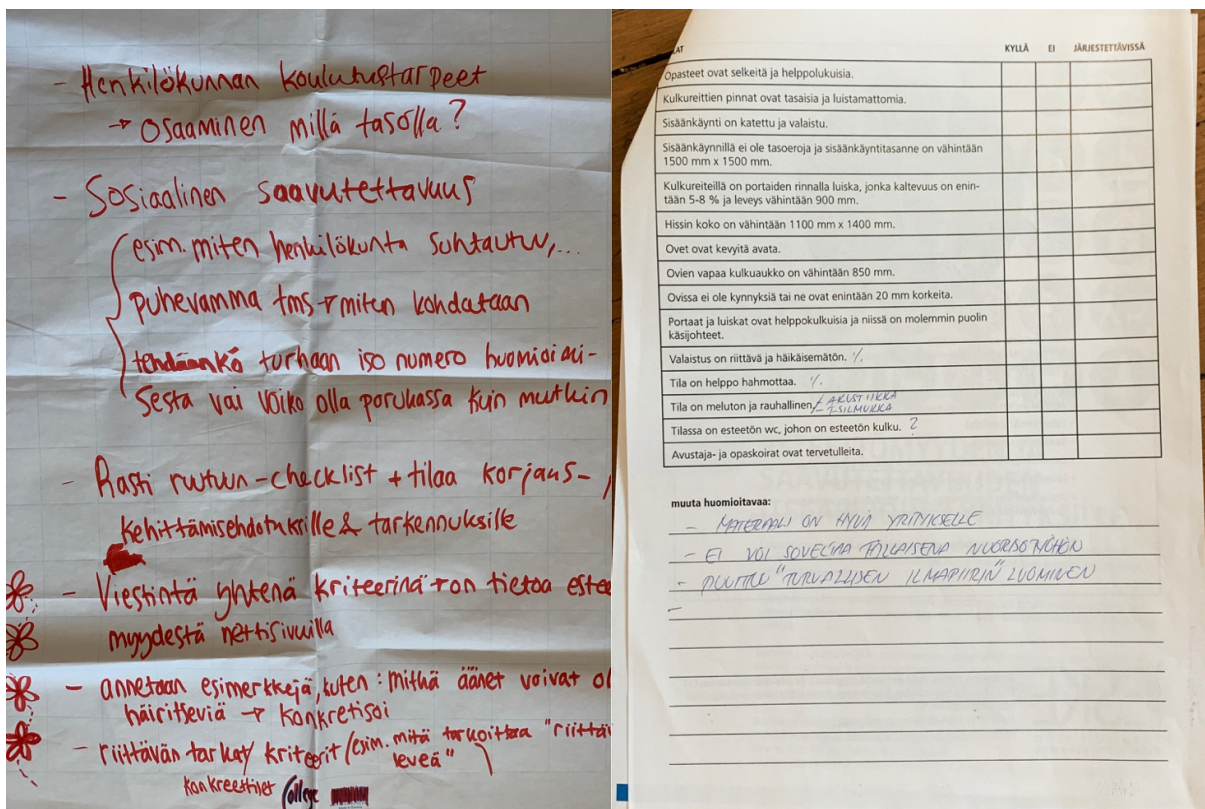 - Henkilökunnan koulutustarpeet
→ osaaminen millä tasolla?
- Sosiaalinen saavutettavuus
esim. miten henkilökunta suhtautuu,...
puhevamma tms → miten kohdataan
tehdäänkö turhaan iso numero huomioimi-
sesta vai voiko olla porukassa kuin muutkin
- Rasti ruutuun -checklist + tilaa korjaus-,
kehittämisehdotuksille & tarkennuksille
- Viestintä yhtenä kriteerinä → on tietoa estee
myydestä nettisivuilla
- annetaan esimerkkejä, kuten: mitkä äänet voivat ol
häiritseviä → konkretisoi
- riittävän tarkat/ kriteerit (esim. mitä tarkoittaa "riittäv
leveä")
konkreettiset
College
AT KYLLÄ EI JÄRJESTETTÄVISSÄ
Opasteet ovat selkeitä ja helppolukuisia.
Kulkureittien pinnat ovat tasaisia ja luistamattomia.
Sisäänkäynti on katettu ja valaistu.
Sisäänkäynnillä ei ole tasoeroja ja sisäänkäyntitasanne on vähintään
1500 mm x 1500 mm.
Kulkureiteillä on portaiden rinnalla luiska, jonka kaltevuus on enin-
tään 5-8 % ja leveys vähintään 900 mm.
Hissin koko on vähintään 1100 mm x 1400 mm.
Ovet ovat kevyitä avata.
Ovien vapaa kulkuaukko on vähintään 850 mm.
Ovissa ei ole kynnyksiä tai ne ovat enintään 20 mm korkeita.
Portaat ja luiskat ovat helppokulkuisia ja niissä on molemmin puolin
käsijohteet.
Valaistus on riittävä ja häikäisemätön. ./.
Tila on helppo hahmottaa. ./.
Tila on meluton ja rauhallinen. - AKUSTIIKKA
- T-SILMUKKA
Tilassa on esteetön wc, johon on esteetön kulku. ?
Avustaja- ja opaskoirat ovat tervetulleita.
muuta huomioitavaa:
- MATERIAALI ON HYVÄ YRITYKSELLE
- EI VOI SOVELTAA TÄLLAISENA NUORISOTYÖHÖN
- PUUTTUU "TURVALLISEN ILMAPIIRIN" LUOMINEN
-